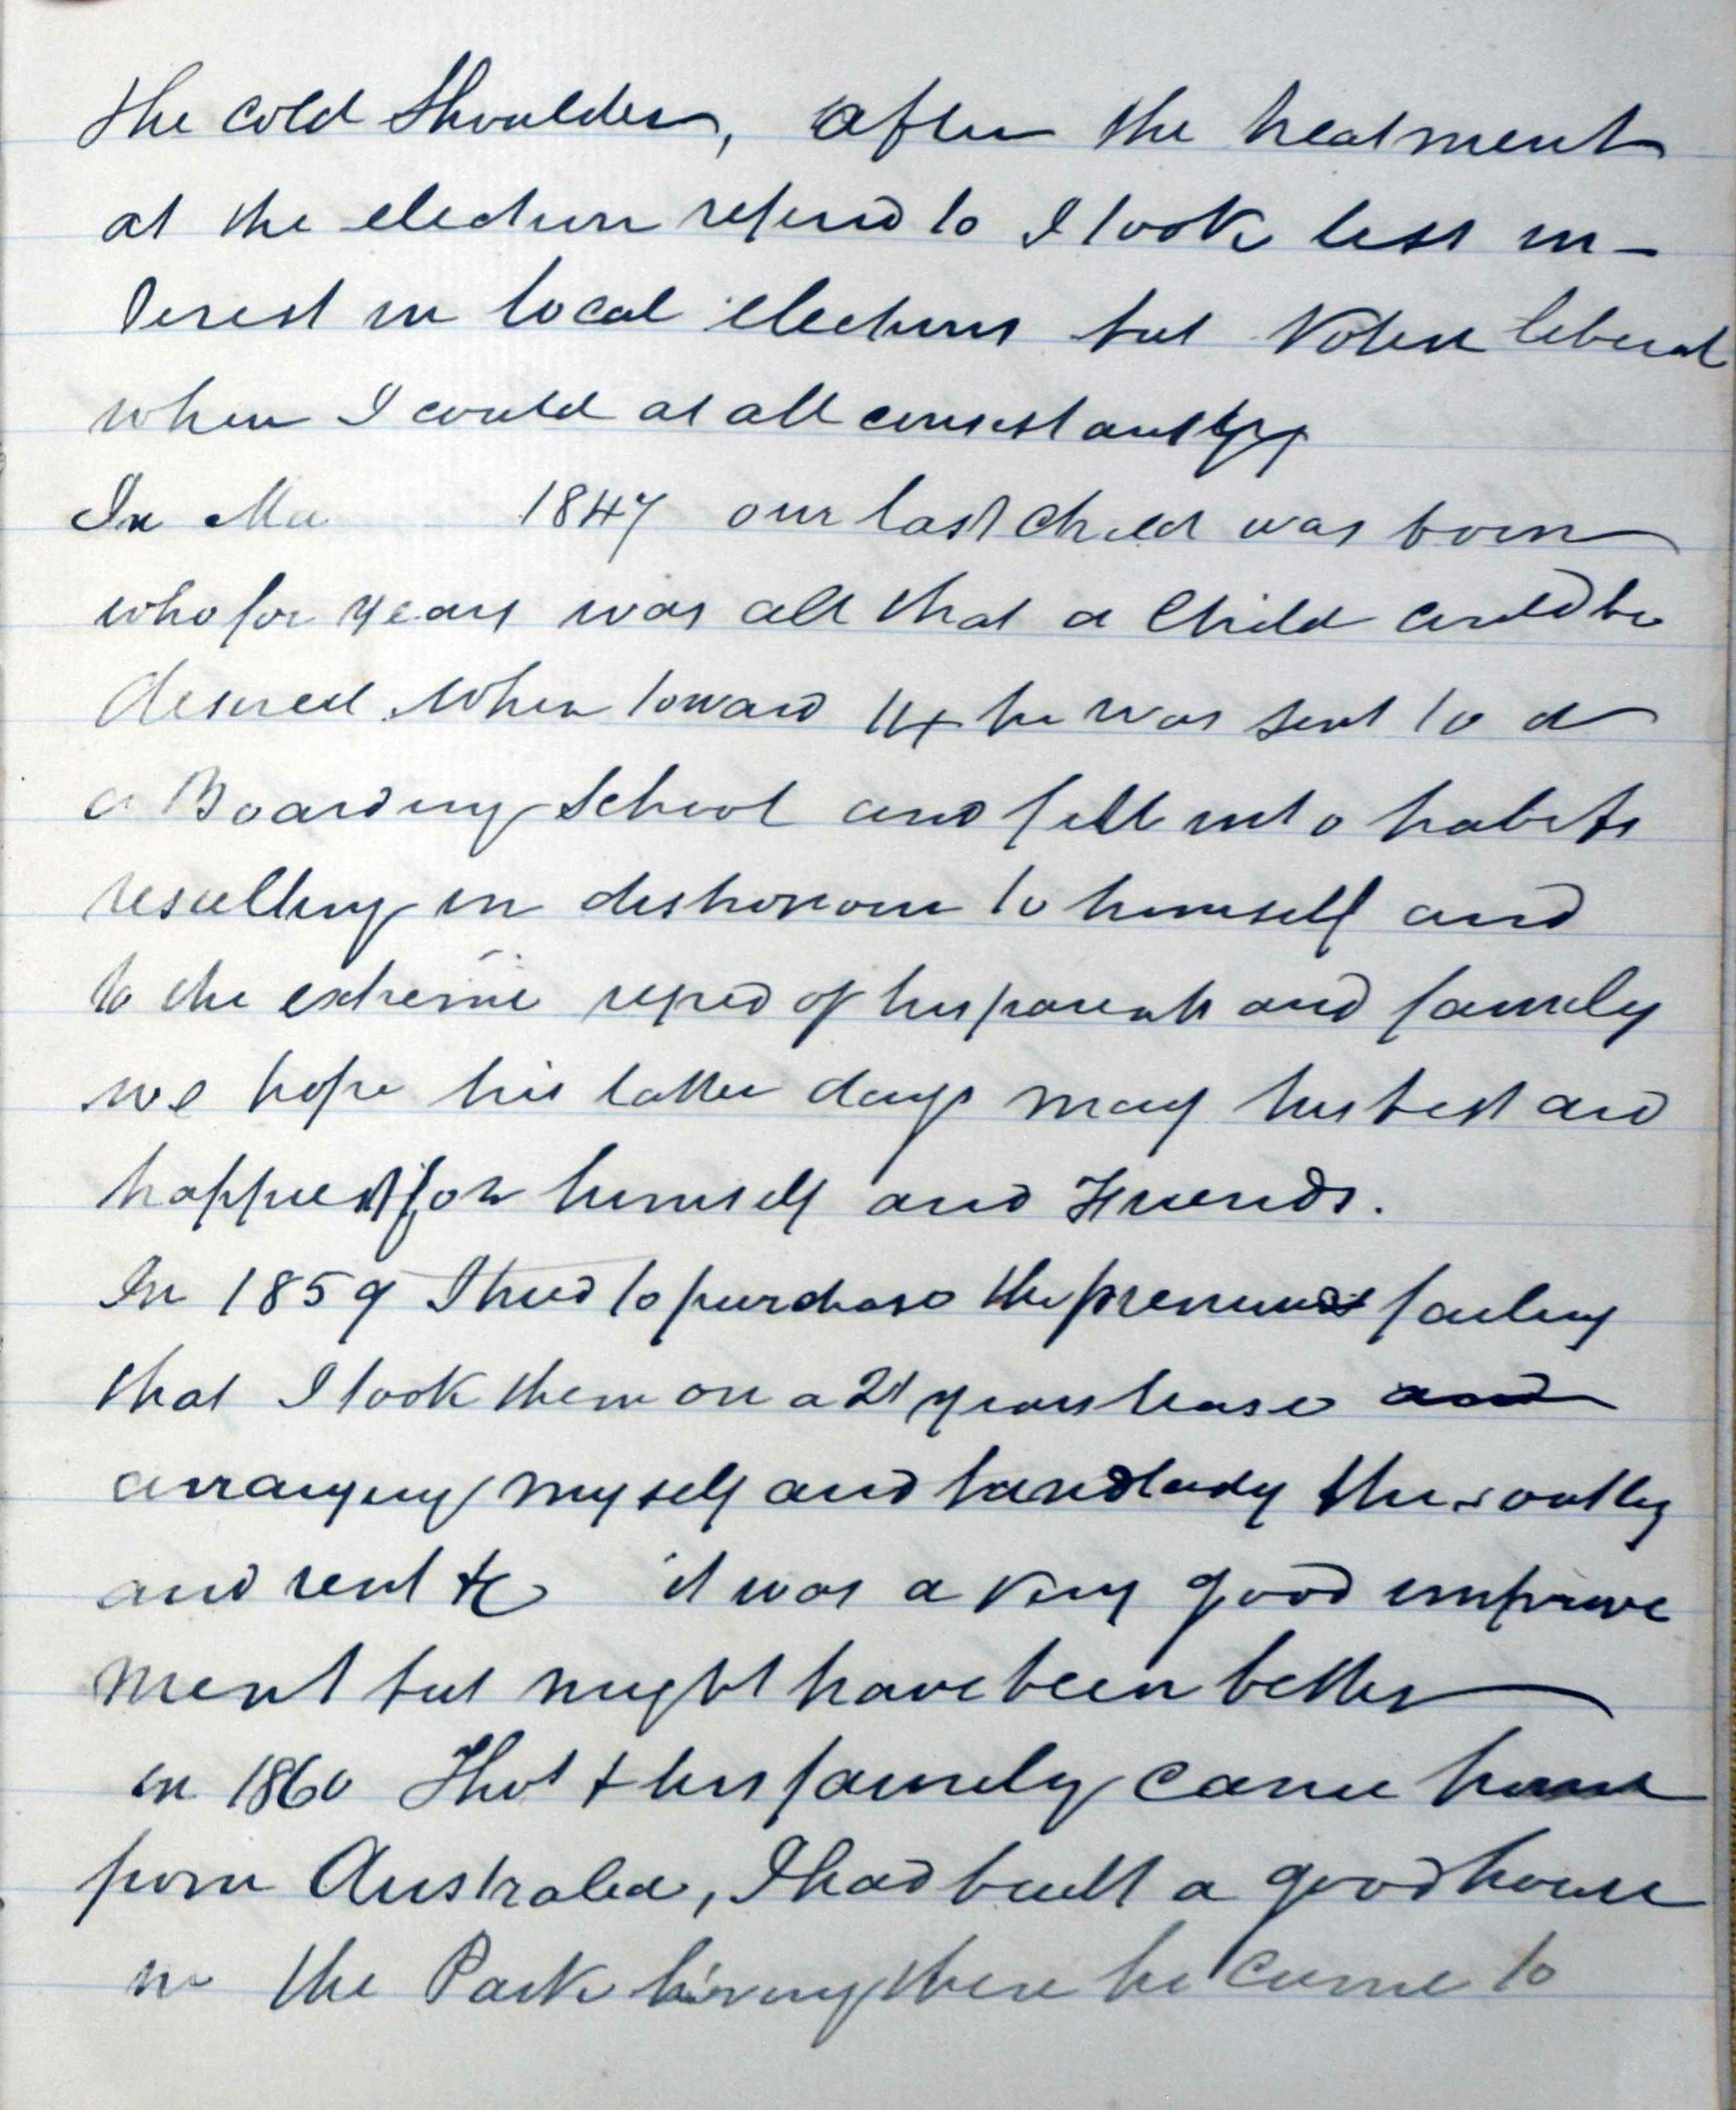 the cold shoulder, after the treatment
at the election referred to I took less in-
terest in local elections but voted liberal
when I could at all consistantly
In Ma 1847 our last child was born
who for years was all that a Child could be
desired. When toward 14 he was sent to a
a Boarding School and fell into habits
resulting in dishonour to himself and
to the extreme of his parents and family
we hope his latter days may his best and
happiest for himself and Friends.
In 1859 I tried to purchase the premises failing
that I took them on a 21 years lease and
arranging myself and landlady the outlay
and rent &c it was a very good improve
ment but might have been better
in 1860 Thos & his family came home
from Australia, I had built a good house
in the Park living there he came to